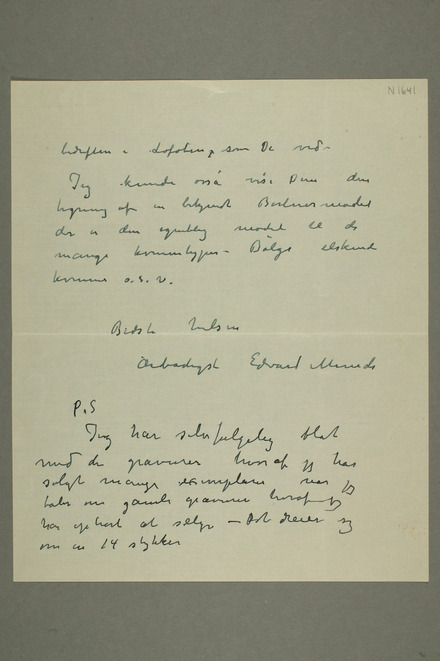 N 1641
i Lofoten, som De ved –
Jeg kunde også vise Dem den
tegning af en Berlinermodel
der er den model til de
mange kvindetyper – elskende
kvinne o.s.v.
Bedste hilsen
Ærbødigst Edvard Munch
P.S
Jeg har selvfølgelig blot
med de gravurer hvoraf jeg har
solgt mange exemplarer når jeg
taler om gamle gravurer hvoraf jeg
har ophørt at sælge – Det dreier sig
om en 14 stykker